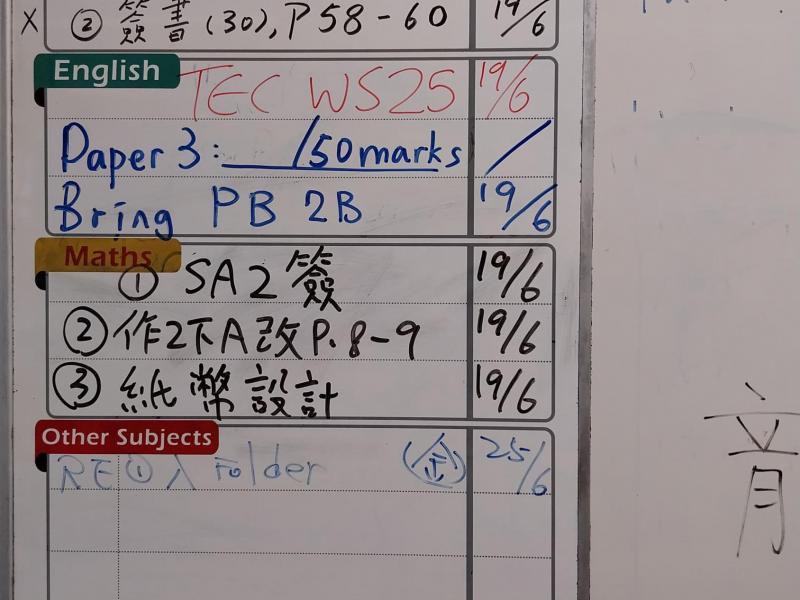 X ② 簽書(30), P58-60 19/6
English
TEC WS25 19/6
Paper 3: ___/50marks /
Bring PB 2B 19/6
Maths
① SA2 簽 19/6
② 作2下A改P.8-9 19/6
③ 紙幣設計 19/6
Other Subjects
RE①入 Folder (金) 25/6